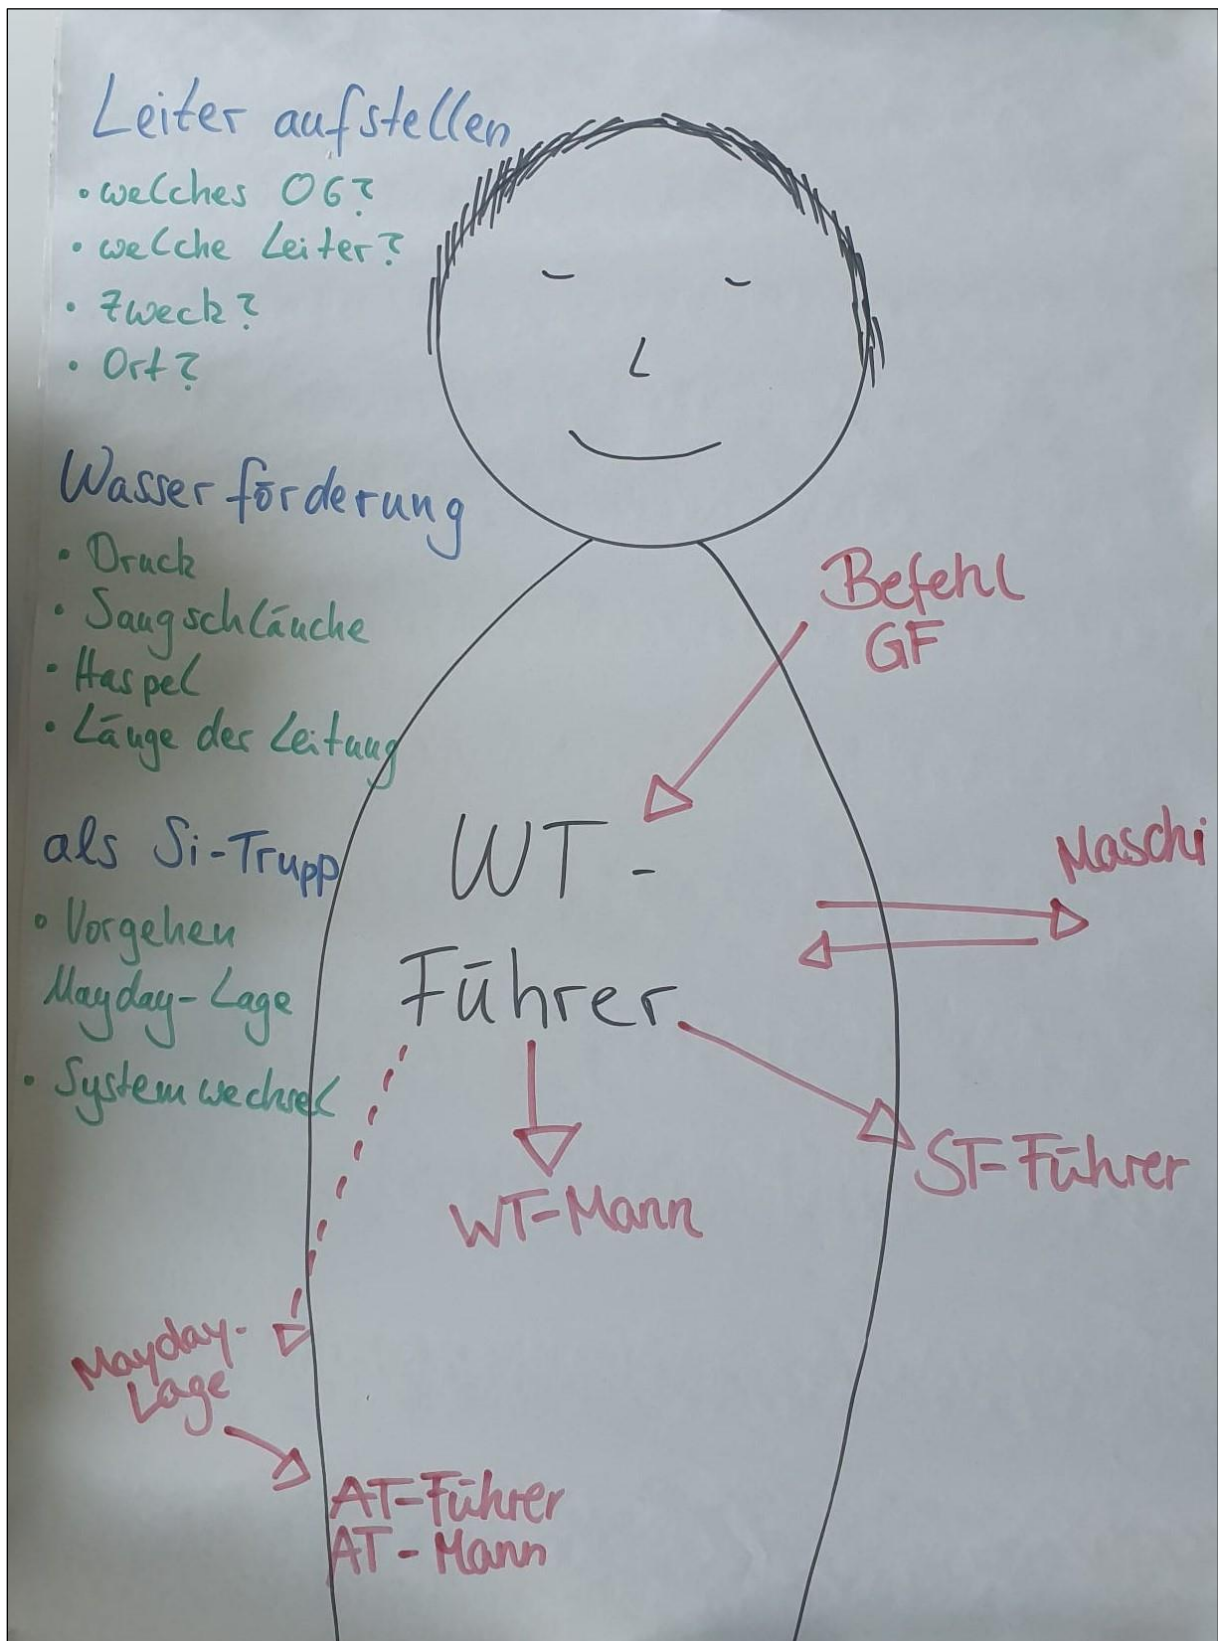 Leiter aufstellen
• welches OG?
• welche Leiter?
• Zweck?
• Ort?
Wasserförderung
• Druck
• Saugschläuche
• Haspel
• Länge der Leitung
als Si-Trupp
• Vorgehen
Mayday-Lage
• Systemwechsel
Befehl
GF
WT-
Führer
Maschi
ST-Führer
WT-Mann
Mayday-
Lage
AT-Führer
AT-Mann